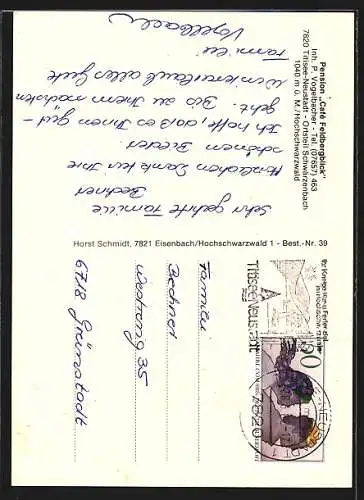 Pension „Café Feldbergblick"
Inh. P. Vogelbacher - Tel. (07657) 463
7820 Titisee-Neustadt - Ortsteil Schwärzenbach
1040 m ü. M./Hochschwarzwald
Sehr geehrte Familie
Bechner
Herzlichen Dank für Ihre
schönen Bilder.
Ich hoffe, daß es Ihnen gut
geht. Bis zu Ihrem nächsten
Winterurlaub alles gute
Familie
Vogelbach
Horst Schmidt, 7821 Eisenbach/Hochschwarzwald 1 - Best.-Nr. 39
Familie
Bechner
35
6718 Grünstadt
Titisee-Neustadt
NEUSTADT
7820